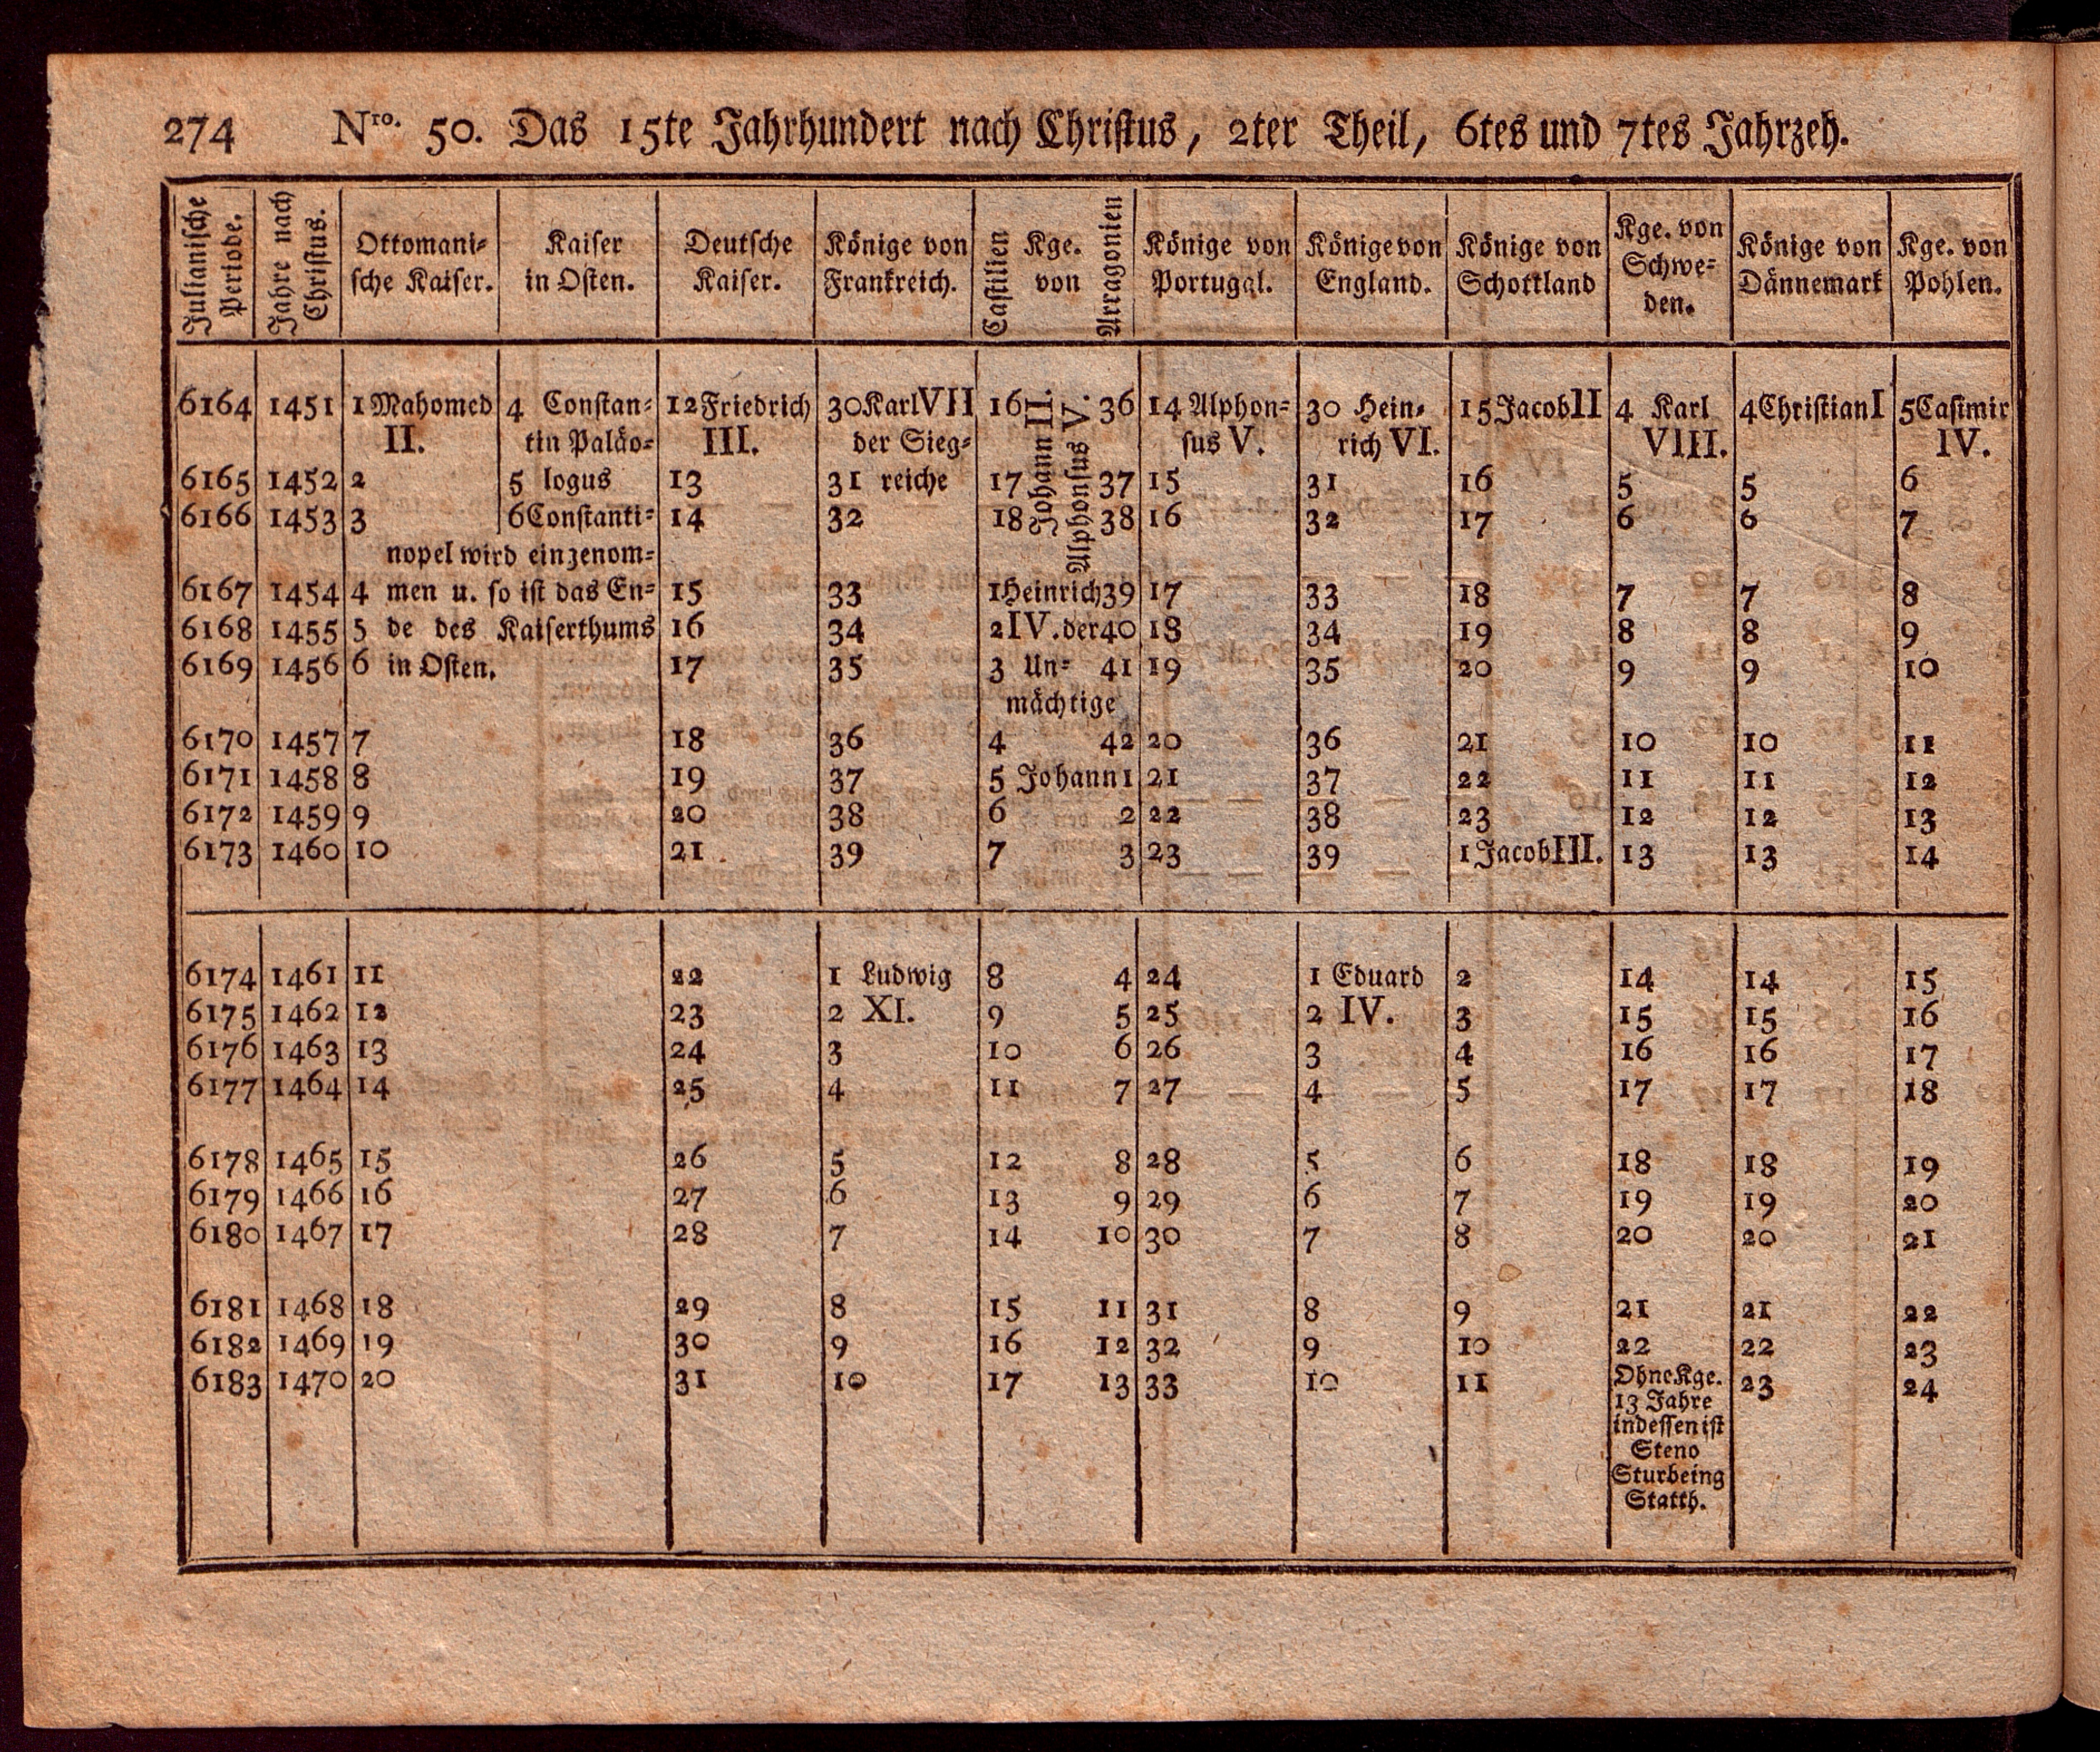 274 Nro. 50. Das 15te Jahrhundert nach Christus, 2ter Theil, 6tes und 7tes Jahrzeh.
Julianische Periode. Jahre nach Christus. Ottomani= sche Kaiser. Kaiser in Osten. Deutsche Kaiser. Könige von Frankreich. Castilien Kge. von Arragonien Könige von Portugal. Könige von England. Könige von Schottland Kge. von Schwe= den. Könige von Dännemark Kge. von Pohlen.
6164 1451 1 Mahomed 4 Constan= 12 Friedrich 30 Karl VII 16 Johann II. Alphonsus V. 36 14 Alphon= 30 Hein= 15 Jacob II 4 Karl 4 Christian I 5 Casimir
II. tin Paläo= III. der Sieg= sus V. rich VI. VIII. IV.
6165 1452 2 5 logus 13 31 reiche 17 37 15 31 16 5 5 6
6166 1453 3 6 Constanti= 14 32 18 38 16 32 17 6 6 7
nopel wird einzenom=
6167 1454 4 men u. so ist das En= 15 33 1 Heinrich 39 17 33 18 7 7 8
6168 1455 5 de des Kaiserthums 16 34 2 IV. der 40 18 34 19 8 8 9
6169 1456 6 in Osten. 17 35 3 Un= 41 19 35 20 9 9 10
mächtige
6170 1457 7 18 36 4 42 20 36 21 10 10 11
6171 1458 8 19 37 5 Johann 1 21 37 22 11 11 12
6172 1459 9 20 38 6 2 22 38 23 12 12 13
6173 1460 10 21 39 7 3 23 39 1 Jacob III. 13 13 14
6174 1461 11 22 1 Ludwig 8 4 24 1 Eduard 2 14 14 15
6175 1462 12 23 2 XI. 9 5 25 2 IV. 3 15 15 16
6176 1463 13 24 3 10 6 26 3 4 16 16 17
6177 1464 14 25 4 11 7 27 4 5 17 17 18
6178 1465 15 26 5 12 8 28 5 6 18 18 19
6179 1466 16 27 6 13 9 29 6 7 19 19 20
6180 1467 17 28 7 14 10 30 7 8 20 20 21
6181 1468 18 29 8 15 11 31 8 9 21 21 22
6182 1469 19 30 9 16 12 32 9 10 22 22 23
6183 1470 20 31 10 17 13 33 10 11 Ohne Kge. 23 24
13 Jahre
indessen ist
Steno
Stur being
Statth.